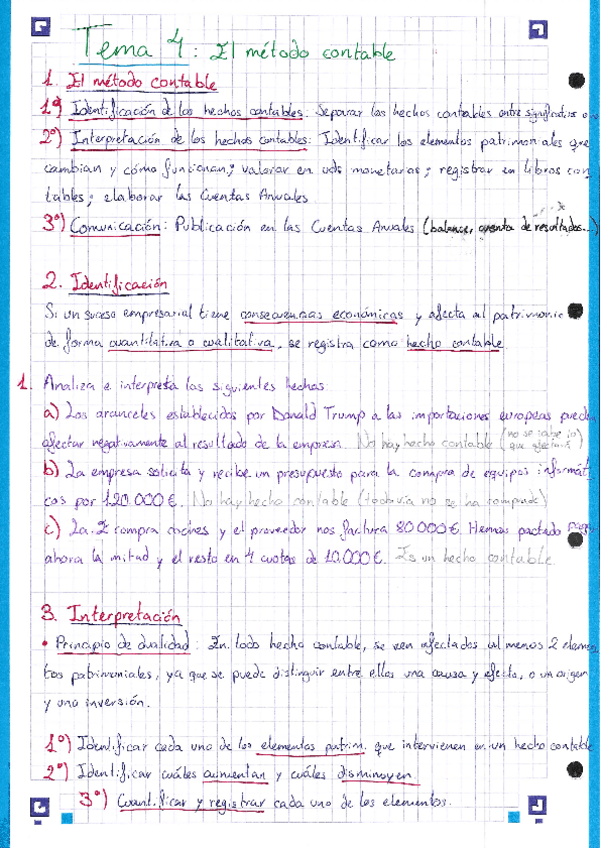 Tema 4: El método contable
1. El método contable
1º) Identificación de los hechos contables. Separar los hechos contables entre significativos o
2º) Interpretación de los hechos contables: Identificar los elementos patrimoniales que
cambian y cómo funcionan; valorar en uds monetarias; registrar en libros con
tables; elaborar las Cuentas Anuales
3º) Comunicación: Publicación en las Cuentas Anuales (balance, cuenta de resultados...)
2. Identificación
Si un suceso empresarial tiene consecuencias económicas y afecta al patrimonio
de forma cuantitativa o cualitativa, se registra como hecho contable.
1. Analiza e interpreta los siguientes hechos:
a) Los aranceles establecidos por Donald Trump a las importaciones europeas pueden
afectar negativamente al resultado de la empresa. No hay hecho contable (no se sabe lo que afectará)
b) La empresa solicita y recibe un presupuesto para la compra de equipos informáti
cos por 120.000€. No hay hecho contable (todavía no se ha comprado)
c) La E compra coches y el proveedor nos factura 80000€. Hemos pactado pagar
ahora la mitad y el resto en 4 cuotas de 10.000€. Es un hecho contable
3. Interpretación
• Principio de dualidad: En todo hecho contable, se ven afectados al menos 2 elemen
tos patrimoniales, ya que se puede distinguir entre ellos una causa y efecto, o un origen
y una inversión.
1º) Identificar cada uno de los elementos patrim. que intervienen en un hecho contable
2º) Identificar cuáles aumentan y cuáles disminuyen.
3º) Cuantificar y registrar cada uno de los elementos.